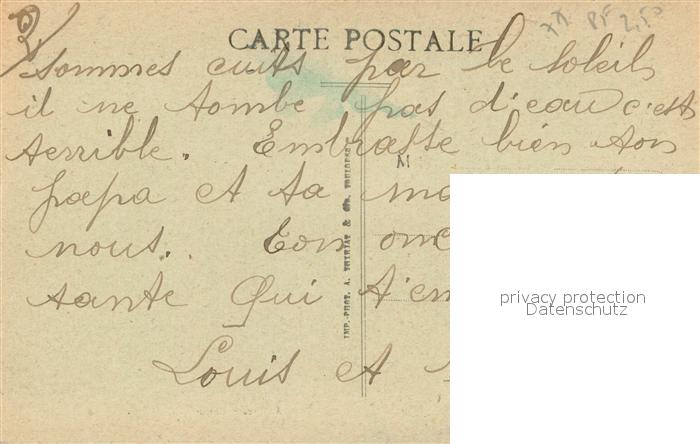 2,50
CARTE POSTALE
sommes cuits par le soleil
il ne tombe pas d'eau c'est
terrible. Embrasse bien ton
papa et ta
nous. Ton
tante Qui t'em
Louis et
M
IMP.-PHOT. A. THIRIAT & Cie, TOULOUSE
privacy protection
Datenschutz